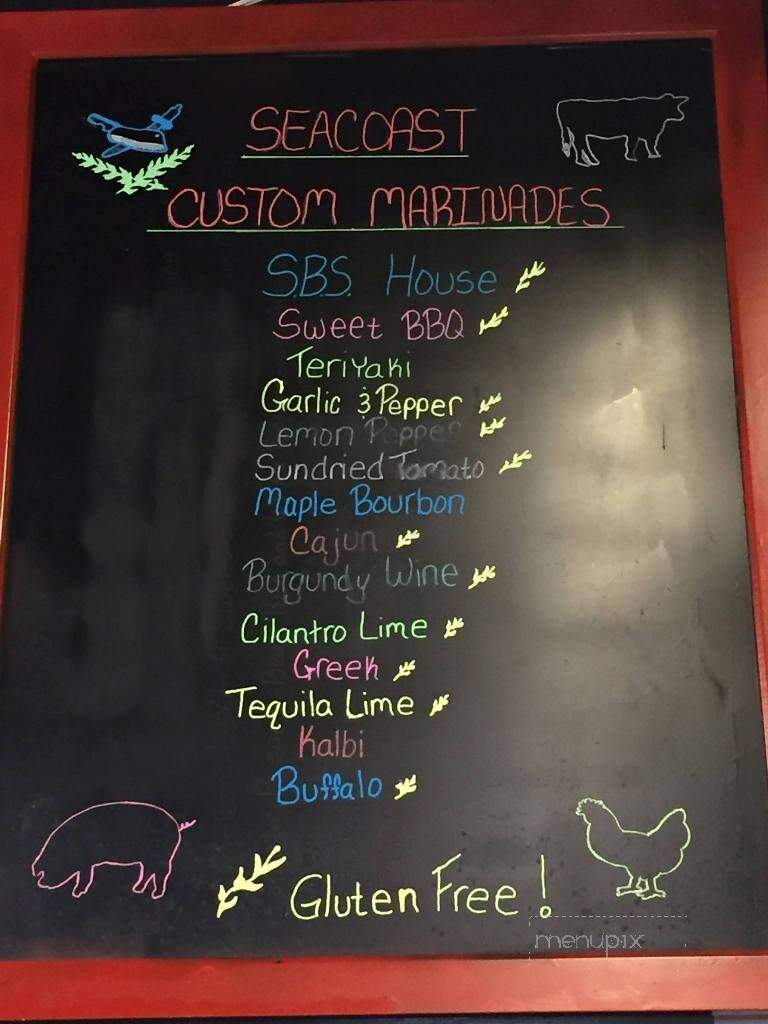 SEACOAST
CUSTOM MARINADES
S.B.S. House
Sweet BBQ
Teriyaki
Garlic & Pepper
Lemon Pepper
Sundried Tomato
Maple Bourbon
Cajun
Burgundy Wine
Cilantro Lime
Greek
Tequila Lime
Kalbi
Buffalo
Gluten Free!
menupix